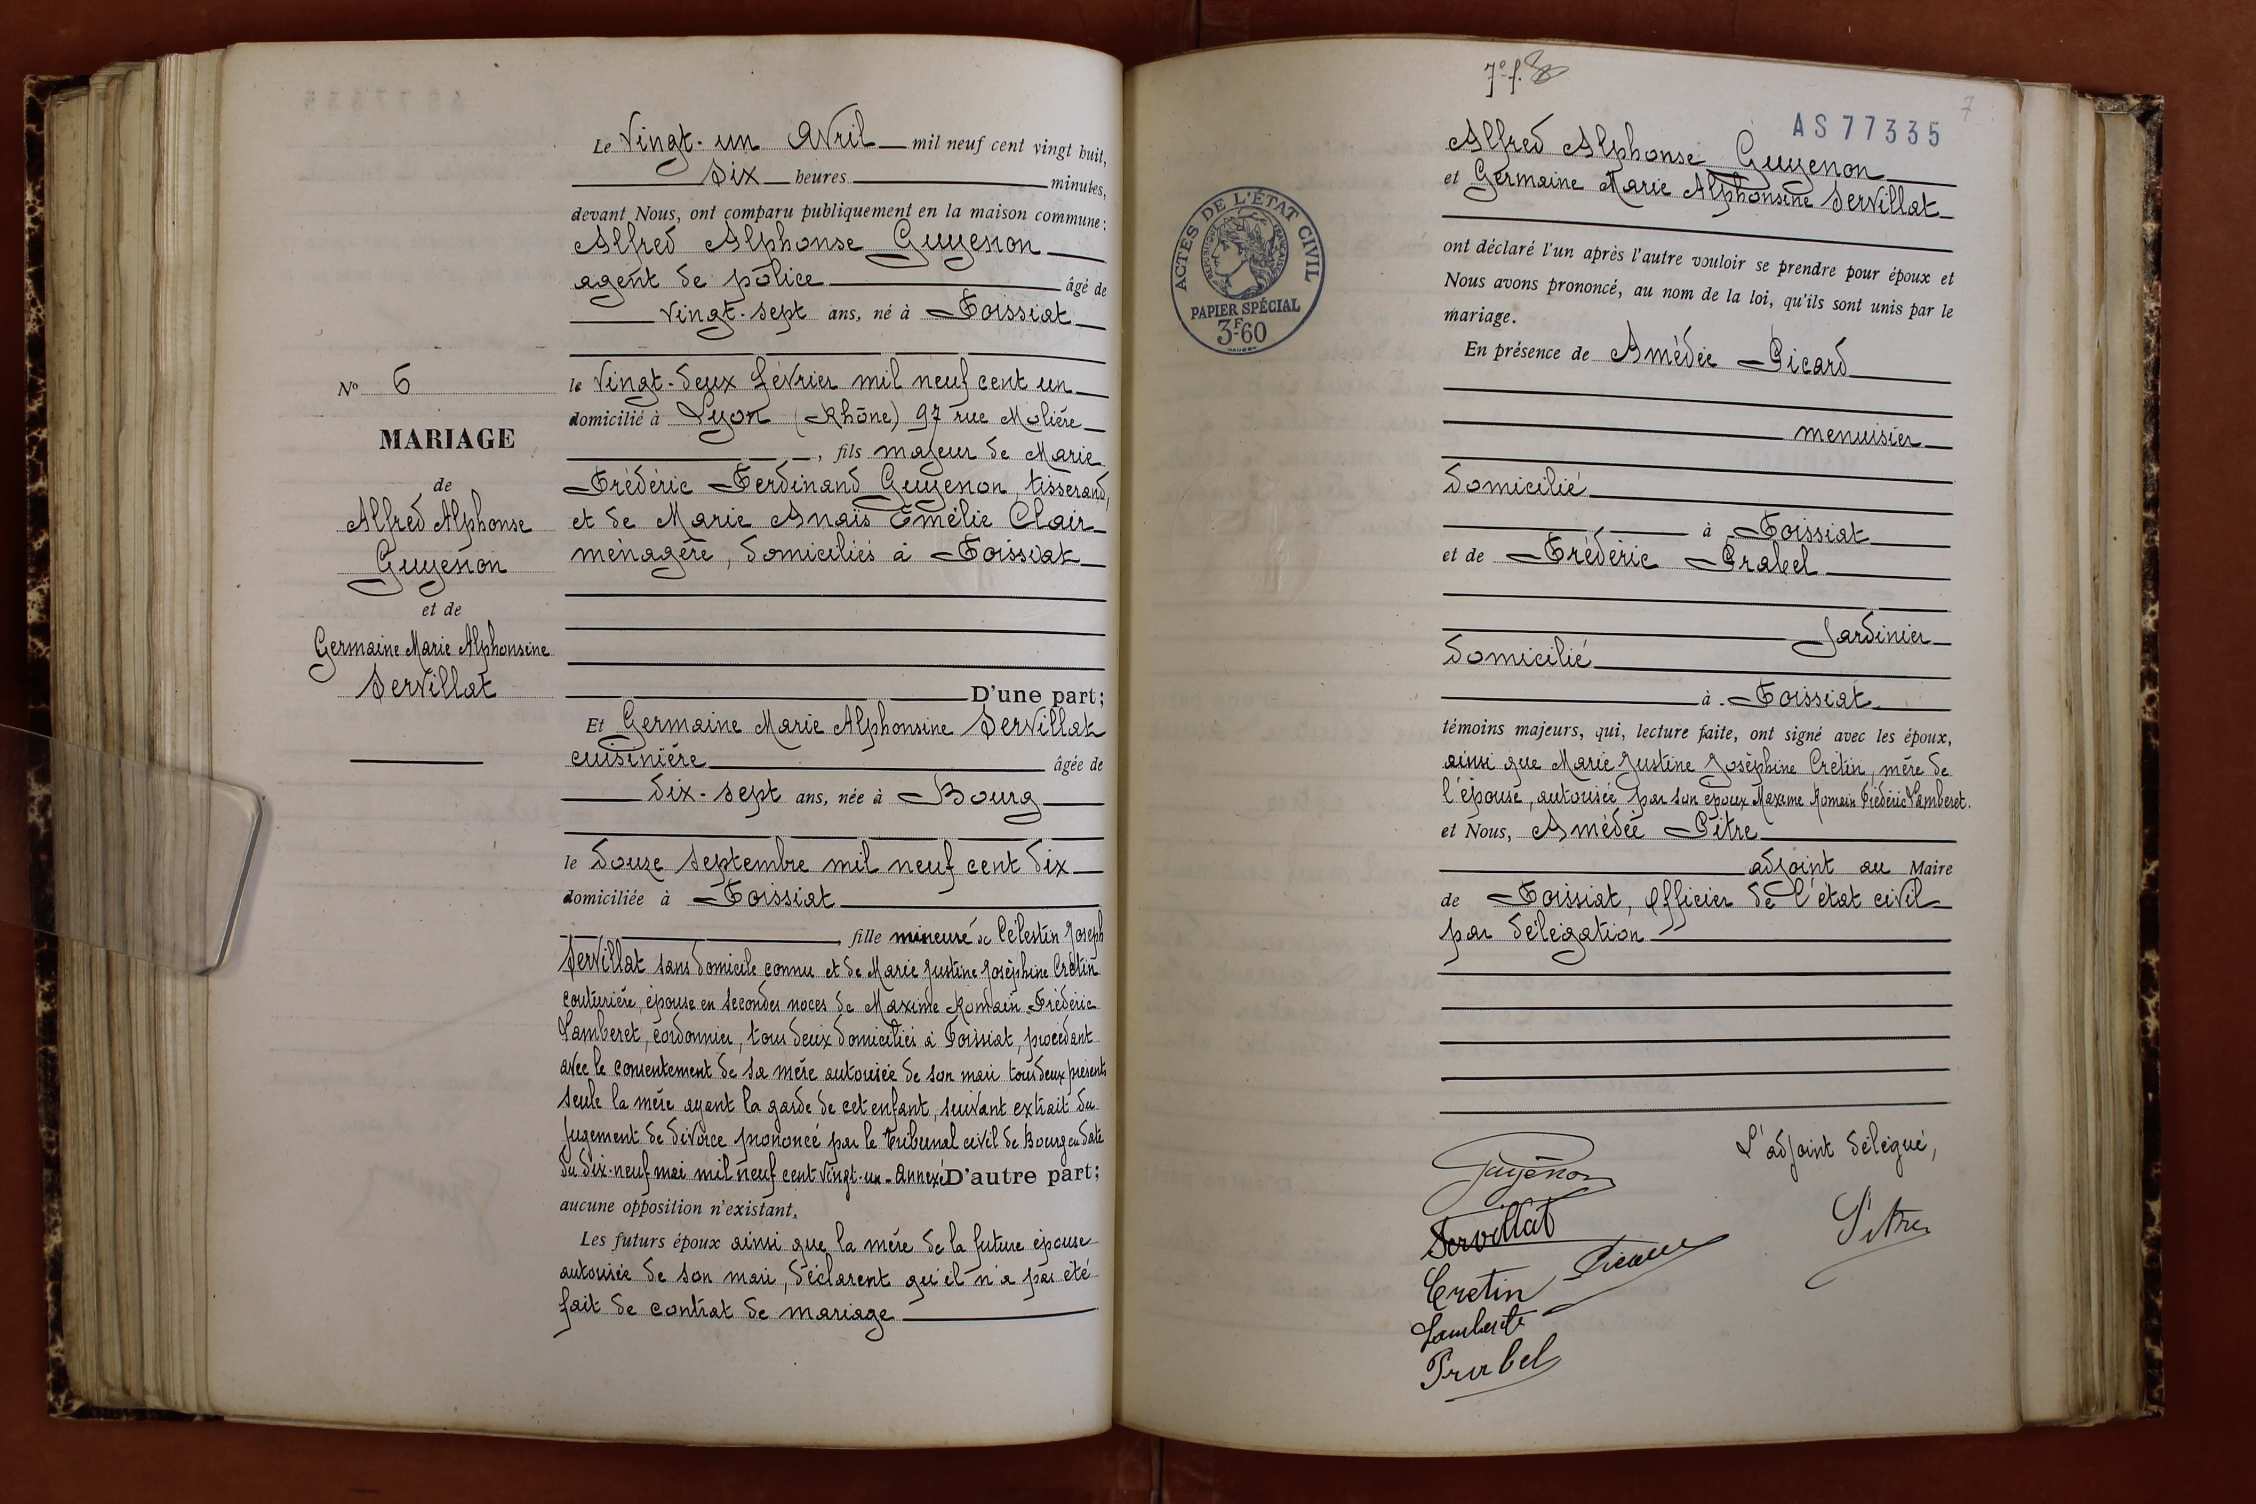 Le Vingt-un Avril mil neuf cent vingt huit,
Six heures minutes,
devant Nous, ont comparu publiquement en la maison commune :
Alfred Alphonse Guyenon
agent de police âgé de
vingt-sept ans, né à Foissiat
le vingt-deux février mil neuf cent un
domicilié à Lyon (Rhône) 97 rue Molière
, fils majeur de Marie
Frédéric Ferdinand Guyenon, tisserand,
et de Marie Anaïs Emélie Clair
ménagère, domiciliés à Foissiat
D'une part;
Et Germaine Marie Alphonsine Servillat
cuisinière âgée de
dix-sept ans, née à Bourg
le douze septembre mil neuf cent dix
domiciliée à Foissiat
, fille mineure de Célestin Joseph
Servillat sans domicile connu et de Marie Justine Joséphine Cretin
couturière, épouse en secondes noces de Maxime Romain Frédéric
Lamberet, cordonnier, tous deux domiciliés à Foissiat, procédant
avec le consentement de sa mère autorisée de son mari tous deux présents
seule la mère ayant la garde de cet enfant, suivant extrait du
jugement de divorce prononcé par le tribunal civil de Bourg en date
du dix-neuf mai mil neuf cent vingt-un - Annexé D'autre part;
aucune opposition n'existant.
Les futurs époux ainsi que la mère de la future épouse
autorisée de son mari, déclarent qu'il n'a pas été
fait de contrat de mariage
N° 6
MARIAGE
de
Alfred Alphonse
Guyenon
et de
Germaine Marie Alphonsine
Servillat
7e f.
7
AS 77335
ACTES DE L'ÉTAT CIVIL
RÉPUBLIQUE FRANÇAISE
PAPIER SPÉCIAL
3F60
Alfred Alphonse Guyenon
et Germaine Marie Alphonsine Servillat
ont déclaré l'un après l'autre vouloir se prendre pour époux et
Nous avons prononcé, au nom de la loi, qu'ils sont unis par le
mariage.
En présence de Amédée Picard
menuisier
domicilié
à Foissiat
et de Frédéric Prabel
jardinier
domicilié
à Foissiat
témoins majeurs, qui, lecture faite, ont signé avec les époux,
ainsi que Marie Justine Joséphine Crétin, mère de
l'épouse, autorisée par son époux Maxime Romain Frédéric Lamberet.
et Nous, Amédée Pitre
adjoint au Maire
de Foissiat, officier de l'état civil
par délégation
L'adjoint délégué,
Guyénon
Servillat
Pitre
Cretin
Picard
Lamberet
Prabel